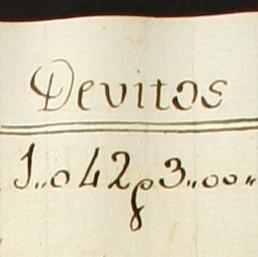 Devitos
1,,042ꝭ3,,00,,